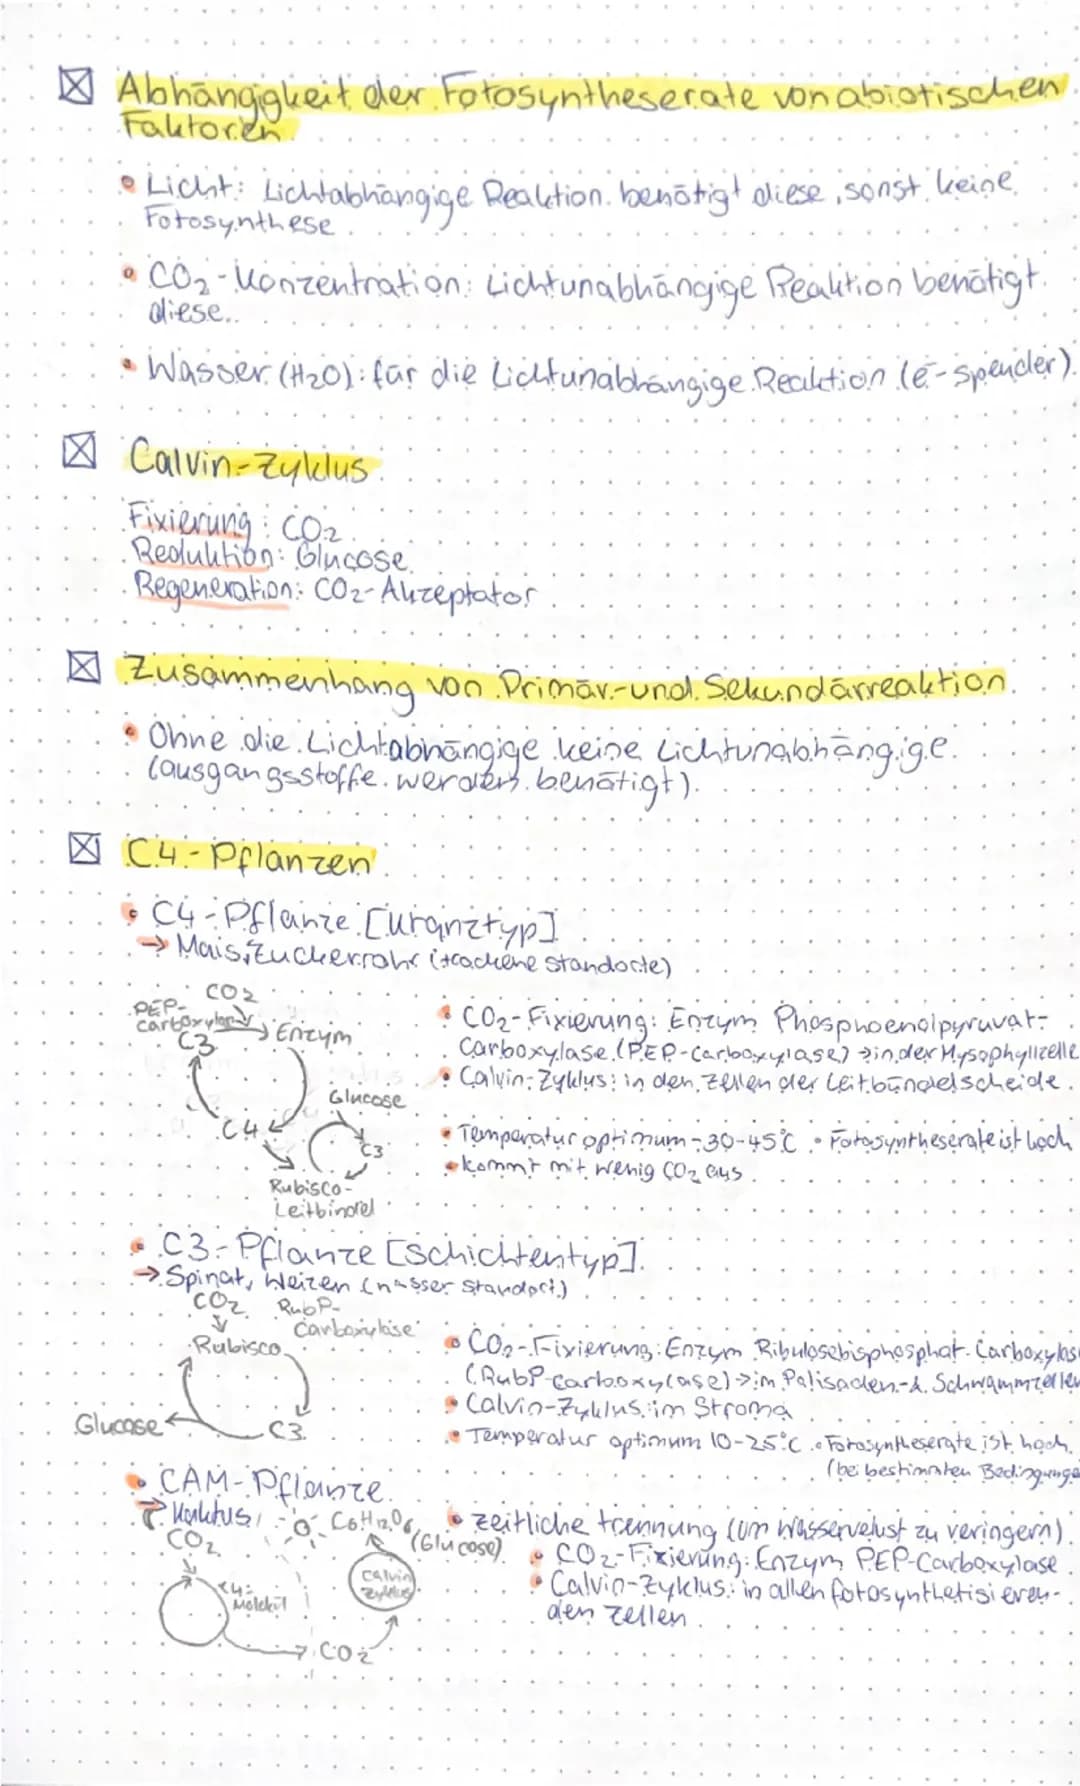 Abhängigkeit der Fotosyntheserate von abiotischen
Faktoren
Licht: Lichtabhängige Reaktion benötigt diese, sonst keine
Fotosynthese
CO2-Konzentration: Lichtunabhängige Reaktion benötigt
diese..
Wasser (H2O): für die Lichtunabhängige Reaktion (e⁻-spender).
Calvin-Zyklus
Fixierung: CO2
Reduktion: Glucose
Regeneration: CO2-Akzeptator
Zusammenhang von Primär- und Sekundärreaktion
Ohne die Lichtabhängige keine Lichtunabhängige
(ausgangsstoffe werden benötigt).
C4-Pflanzen
C4-Pflanze [Kranztyp]
→ Mais, Zuckerrohr (trockene Standorte)
CO2
PEP-
carboxylase
C3
Enzym
Glucose
C4
C3
Rubisco-
Leitbündel
CO2-Fixierung: Enzym Phosphoenolpyruvat-
Carboxylase (PEP-Carboxylase) → in der Mysophyllzelle
Calvin-Zyklus: in den Zellen der Leitbündelscheide.
Temperatur optimum - 30-45°C • Fotosyntheserate ist hoch
kommt mit wenig CO2 aus
C3-Pflanze [Schichtentyp]
→ Spinat, Weizen (nasser Standort)
CO2
RubP-
Carboxylase
Rubisco
Glucose
C3
CO2-Fixierung: Enzym Ribulosebisphosphat-Carboxylas
(RubP-Carboxylase) → im Palisaden- & Schwammzellen
Calvin-Zyklus: im Stroma
Temperatur optimum 10-25°C • Fotosyntheserate ist hoch
(bei bestimmten Bedingunge
CAM-Pflanze
→ Kaktus,
CO2
C6H12O6
(Glucose)
C4-
Molekül
Calvin
Zyklus
CO2
zeitliche trennung (um Wasserverlust zu veringern)
CO2-Fixierung: Enzym PEP-Carboxylase
Calvin-Zyklus: in allen fotosynthetisieren-
den Zellen